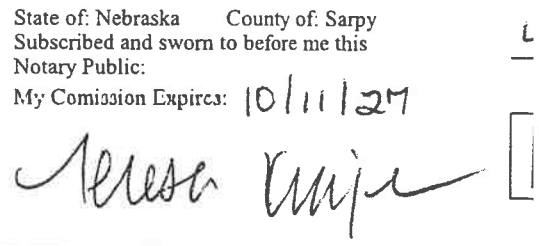 State of: Nebraska County of: Sarpy
Subscribed and sworn to before me this
Notary Public:
My Comission Expires: 10/11/27
Teresa